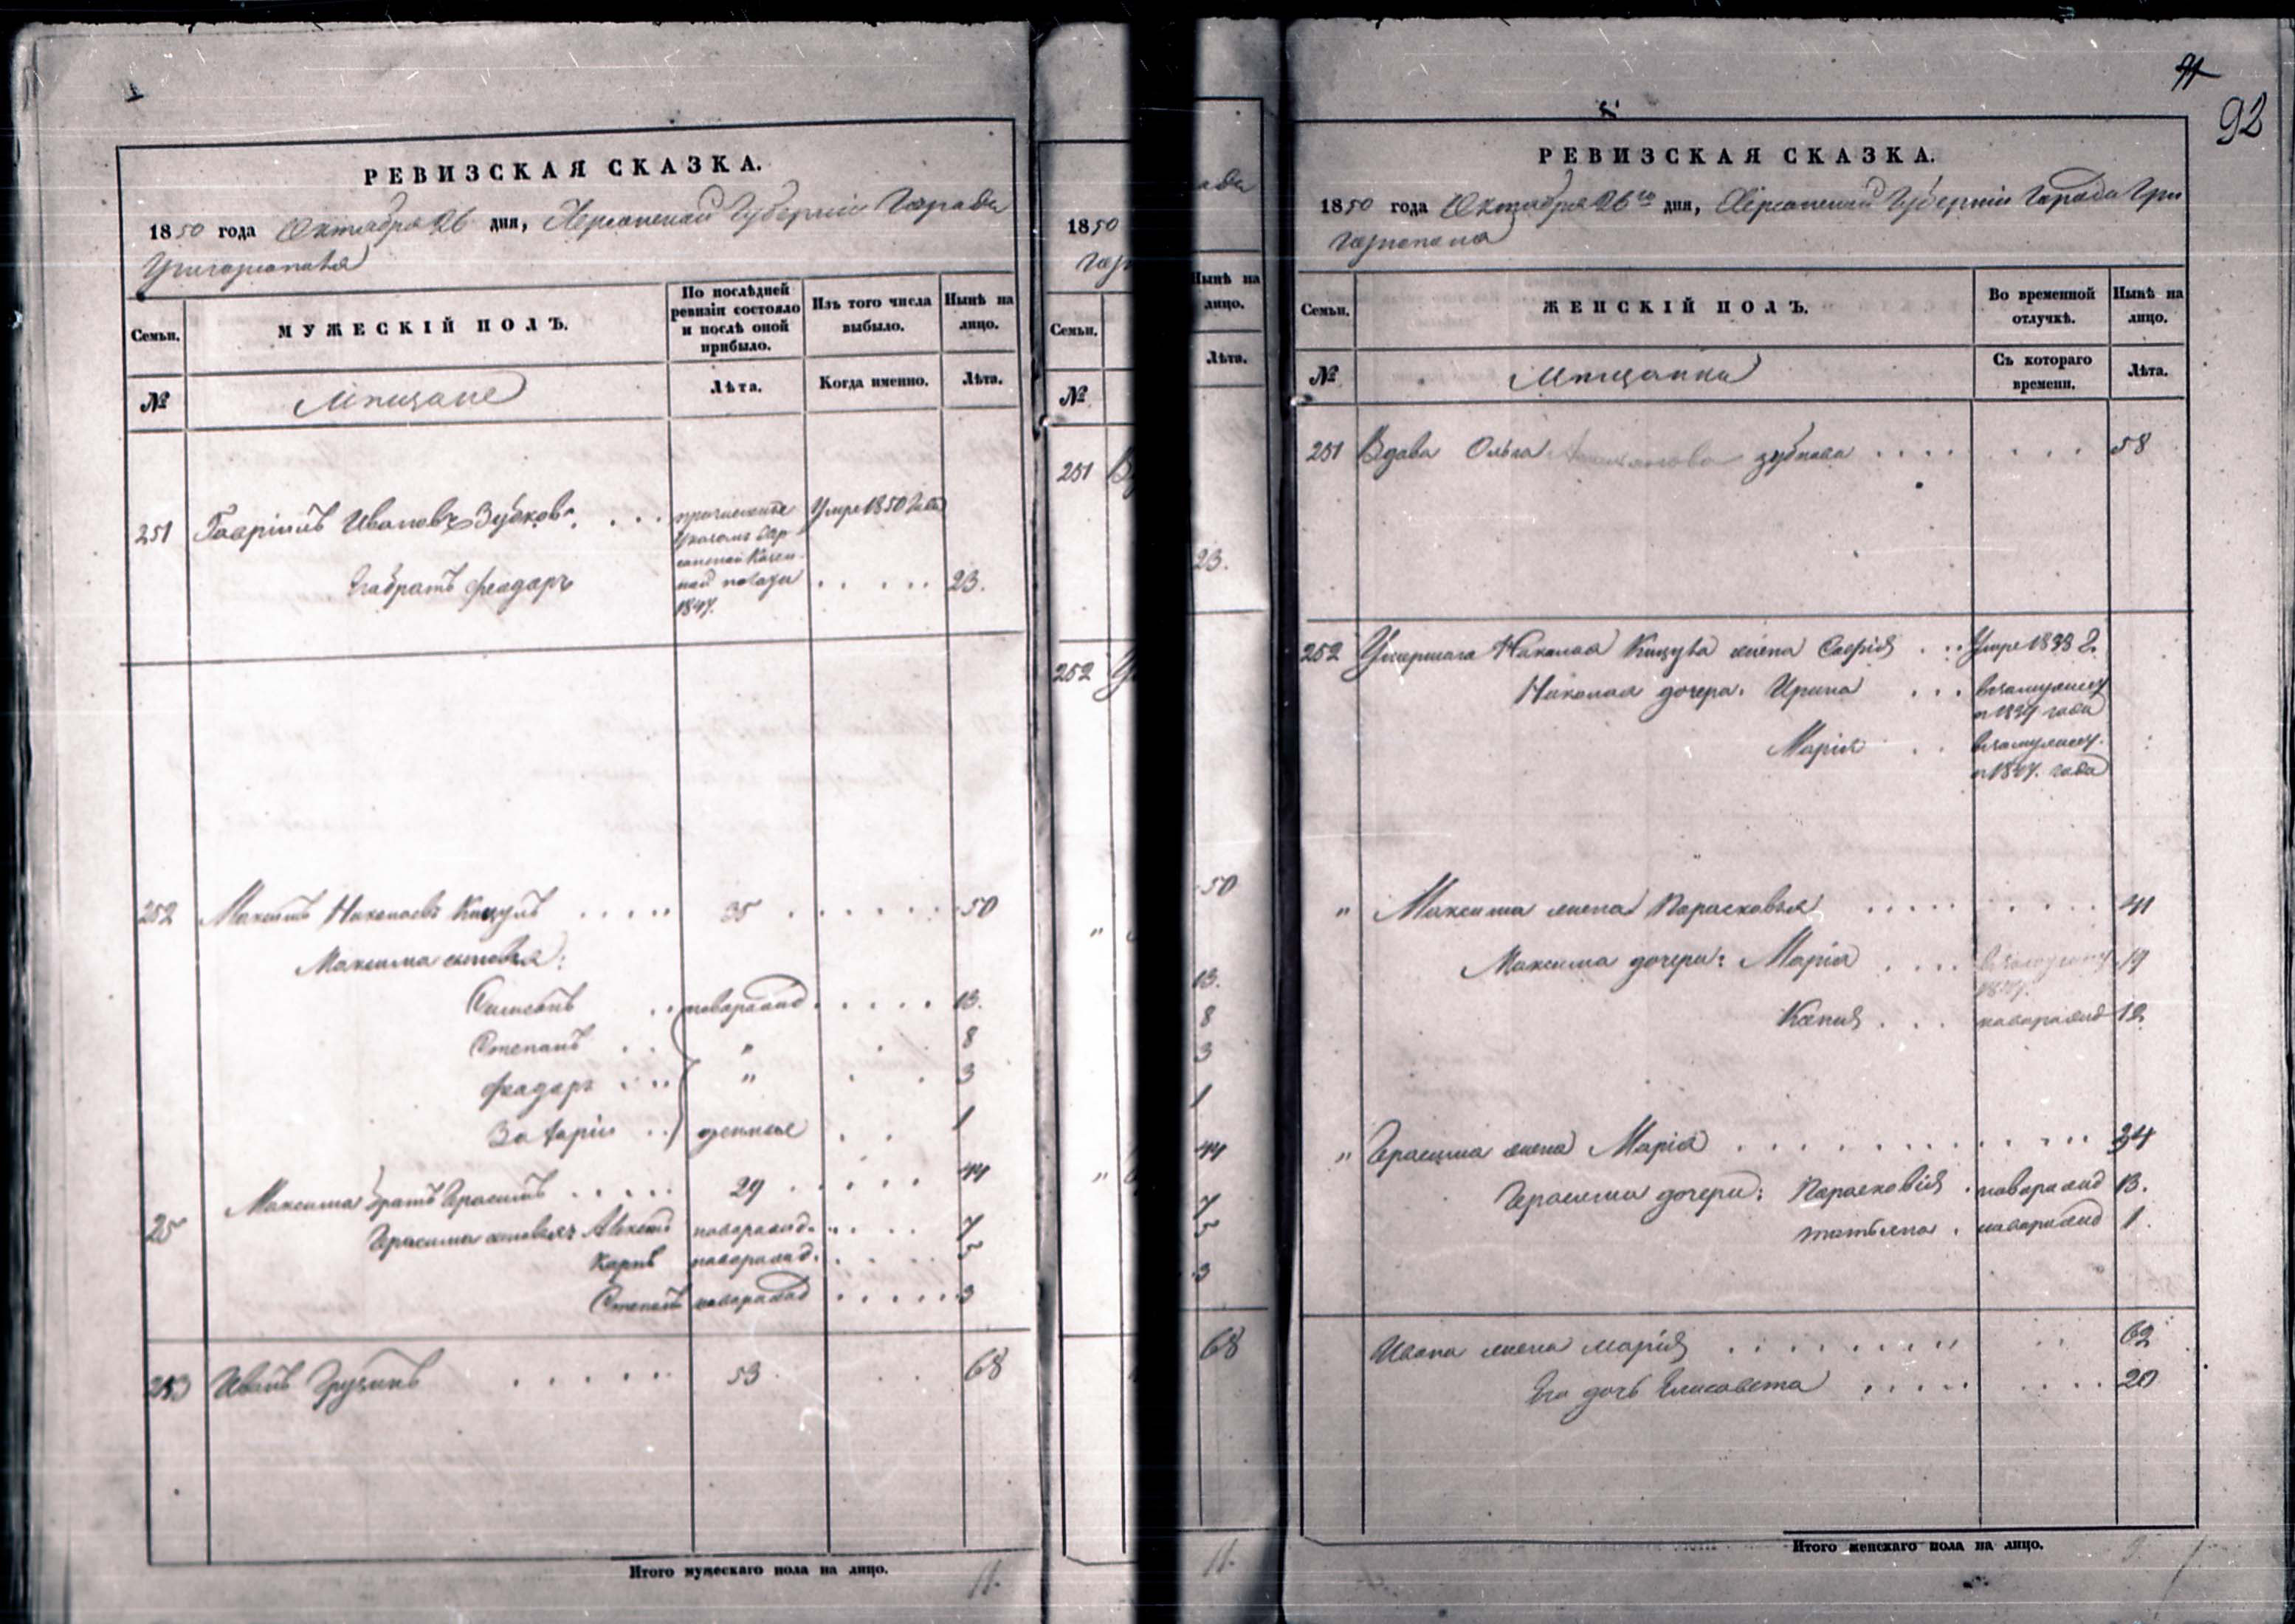 92
РЕВИЗСКАЯ СКАЗКА.
1850 года Октября 26 дня, Херсонской Губернии Города
Григориополя
Семьи.
МУЖЕСКІЙ ПОЛЪ.
По послѣдней ревизіи состояло и послѣ оной прибыло.
Изъ того числа выбыло.
Нынѣ на лицо.
№
Мѣщане
Лѣта.
Когда именно.
Лѣта.
251 Гавріилъ Ивановъ Зубковъ . . . причисленъ Умре 1850 года
Указомъ Хер-
сонской Казен-
ной палаты
1847.
Его братъ Феодоръ . . . . . 23.
252 Максимъ Николаевъ Кицулъ . . . . . 35 . . . . . . 50
Максима сыновья:
Симеонъ . . новорожд . . . . . 13.
Степанъ . . " . . 8
Феодоръ . . . " . . 3
Захарій . . денные . . 1
Максима братъ Герасимъ . . . . . 29 . . . . . 44
25 Герасима сыновья: Алексѣй новорожд. . . . . 7
Карпъ новорожд. . . . . 5
Степанъ новорожд . . . . . . 3
253 Иванъ . . . . . 53 . . . 68
Итого мужескаго пола на лицо.
11.
1850
Семьи.
№
251
252
"
"
Нынѣ на лицо.
Лѣта.
23.
50
13.
8
3
1
44
7
5
3
68
11.
РЕВИЗСКАЯ СКАЗКА.
1850 года Октября 26го дня, Херсонской Губерніи Города Гри
горіополя
Семьи.
ЖЕНСКІЙ ПОЛЪ.
Во временной отлучкѣ.
Нынѣ на лицо.
№
Мѣщанки
Съ котораго времени.
Лѣта.
251 Вдова Ольга Зубкова . . . . . . . . 58
252 Умершаго Николая Кицула жена Софія . . . Умре 1838 г.
Николая дочери: Ирина . . . в замужест
Марія . . в замужест.
" Максима жена Парасковья . . . . . . . . . 41
Максима дочери: Марія . . . . 19
Ксенія . . . новорожд 12
" Герасима жена Марія . . . . . . . . . . . . 34
Герасима дочери: Парасковія . новорожд 13.
Татьяна . новорожд 1.
Ивана жена Марія . . . . . . . . . . 62
Его дочь Елисавета . . . . . . . . . 20
Итого женскаго пола на лицо.
9.